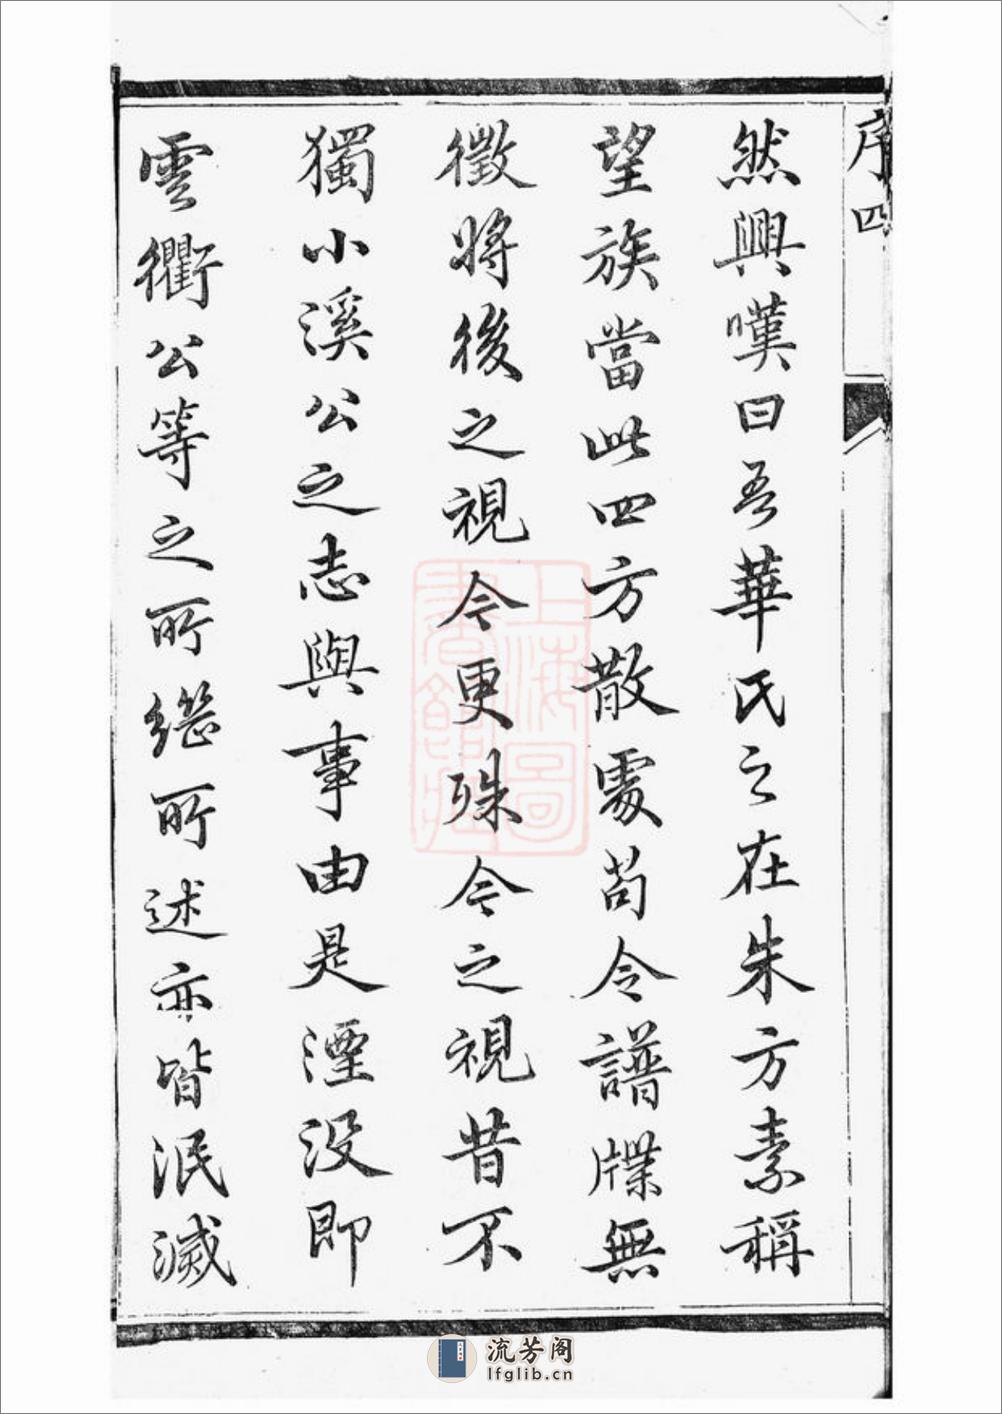 序四
然興嘆曰吾華氏之在朱方素稱
望族當此四方散處苟令譜牒無
徵將後之視今更殊今之視昔不
獨小溪公之志與事由是湮没即
雲衢公等之所繼所述亦皆泯滅
上海圖
書館藏
流芳阁
lfglib.cn